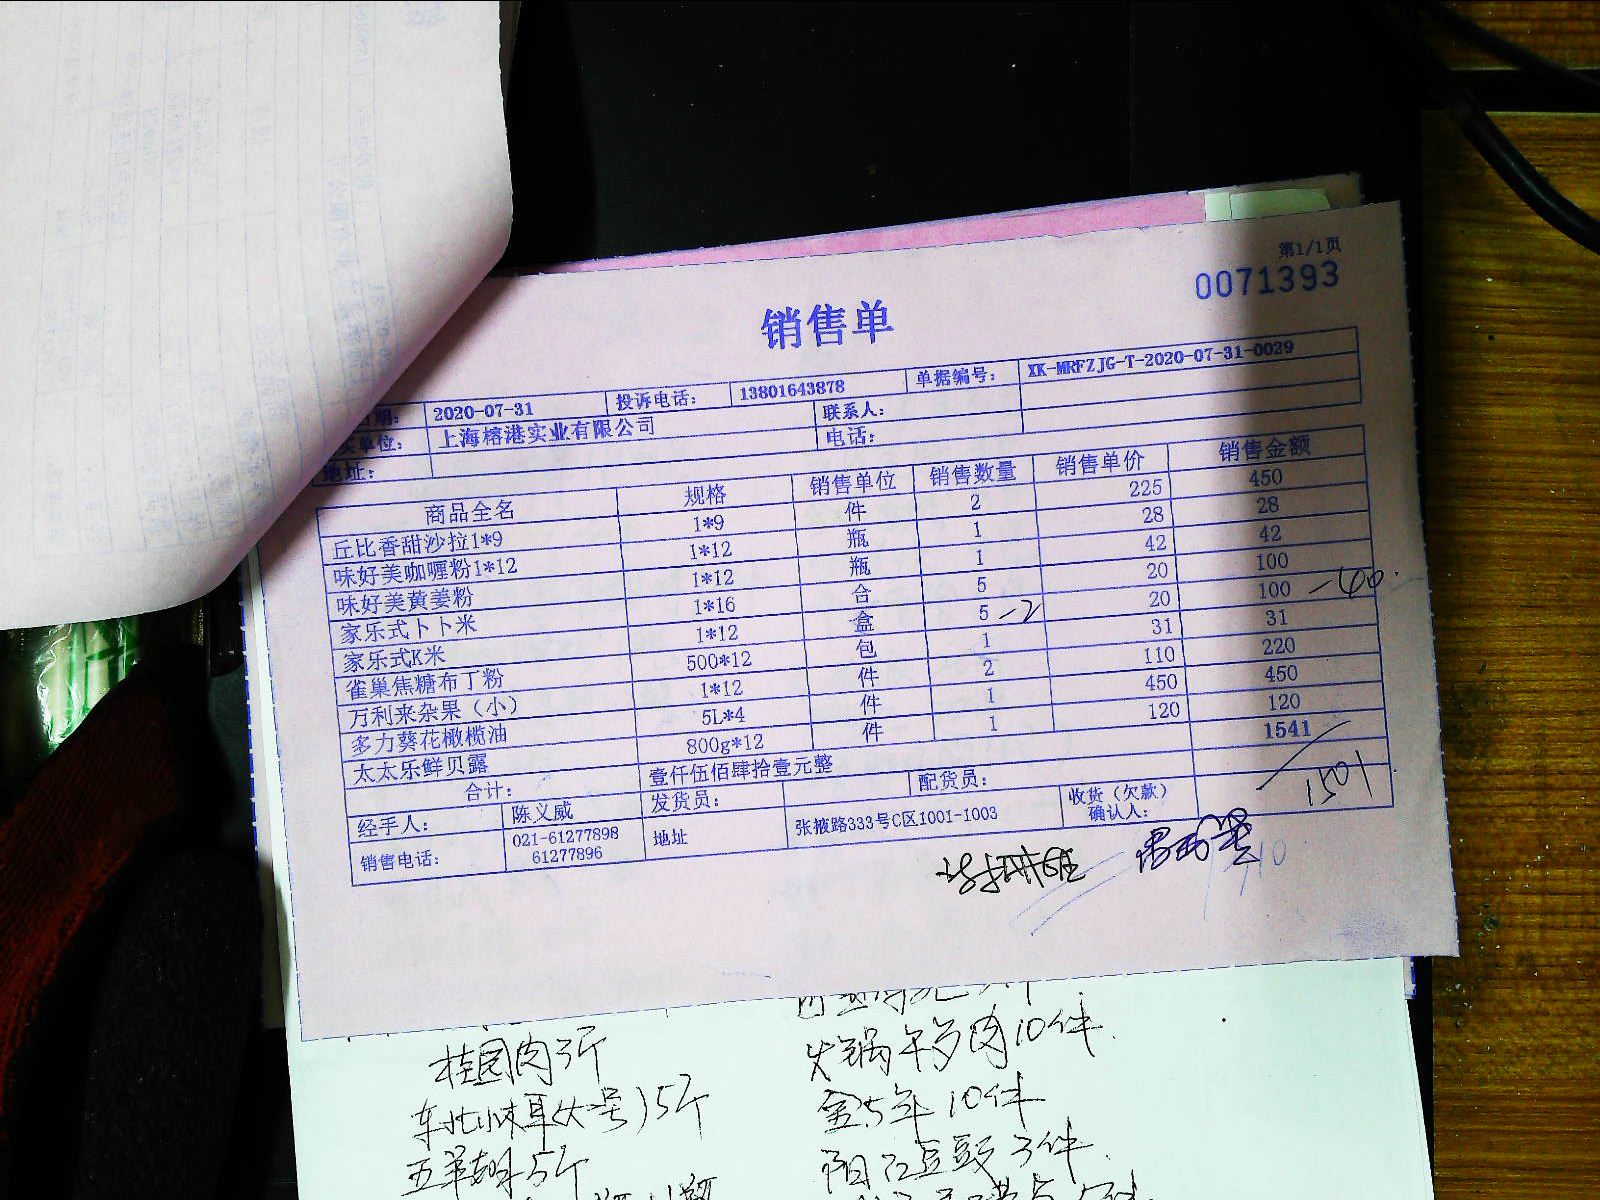 第1/1页
0071393
销售单
日期: 2020-07-31 投诉电话: 13801643878 单据编号: XK-MRFZJG-T-2020-07-31-0029
单位: 上海榕港实业有限公司 联系人:
地址: 电话:
商品全名 规格 销售单位 销售数量 销售单价 销售金额
丘比香甜沙拉1*9 1*9 件 2 225 450
味好美咖喱粉1*12 1*12 瓶 1 28 28
味好美黄姜粉 1*12 瓶 1 42 42
家乐式卜卜米 1*16 合 5 20 100
家乐式K米 1*12 盒 5 -2 20 100 -40
雀巢焦糖布丁粉 500*12 包 1 31 31
万利来杂果（小） 1*12 件 2 110 220
多力葵花橄榄油 5L*4 件 1 450 450
太太乐鲜贝露 800g*12 件 1 120 120
合计: 壹仟伍佰肆拾壹元整 1541
1501
经手人: 陈义威 发货员: 配货员: 收货（欠款）确认人:
销售电话: 021-61277898 61277896 地址 张掖路333号C区1001-1003
桂园肉3斤
火锅年多肉10件
东北小木耳(大号)5斤
金5年10件
五羊 5斤
阳江豆豉3件